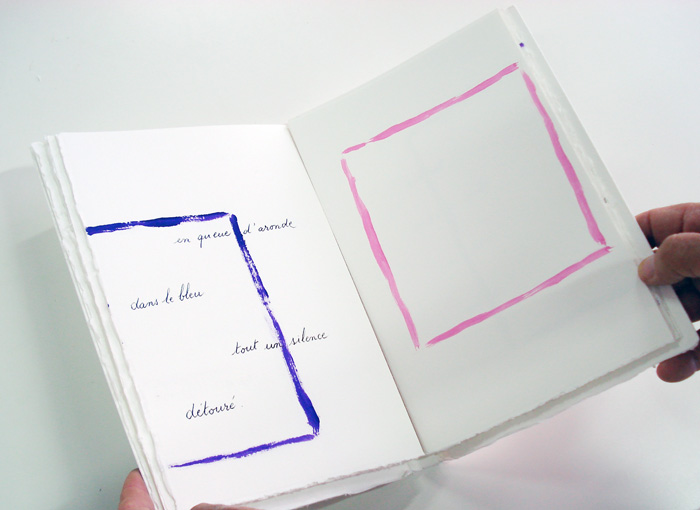 en queue d'aronde
dans le bleu
tout un silence
détouré.